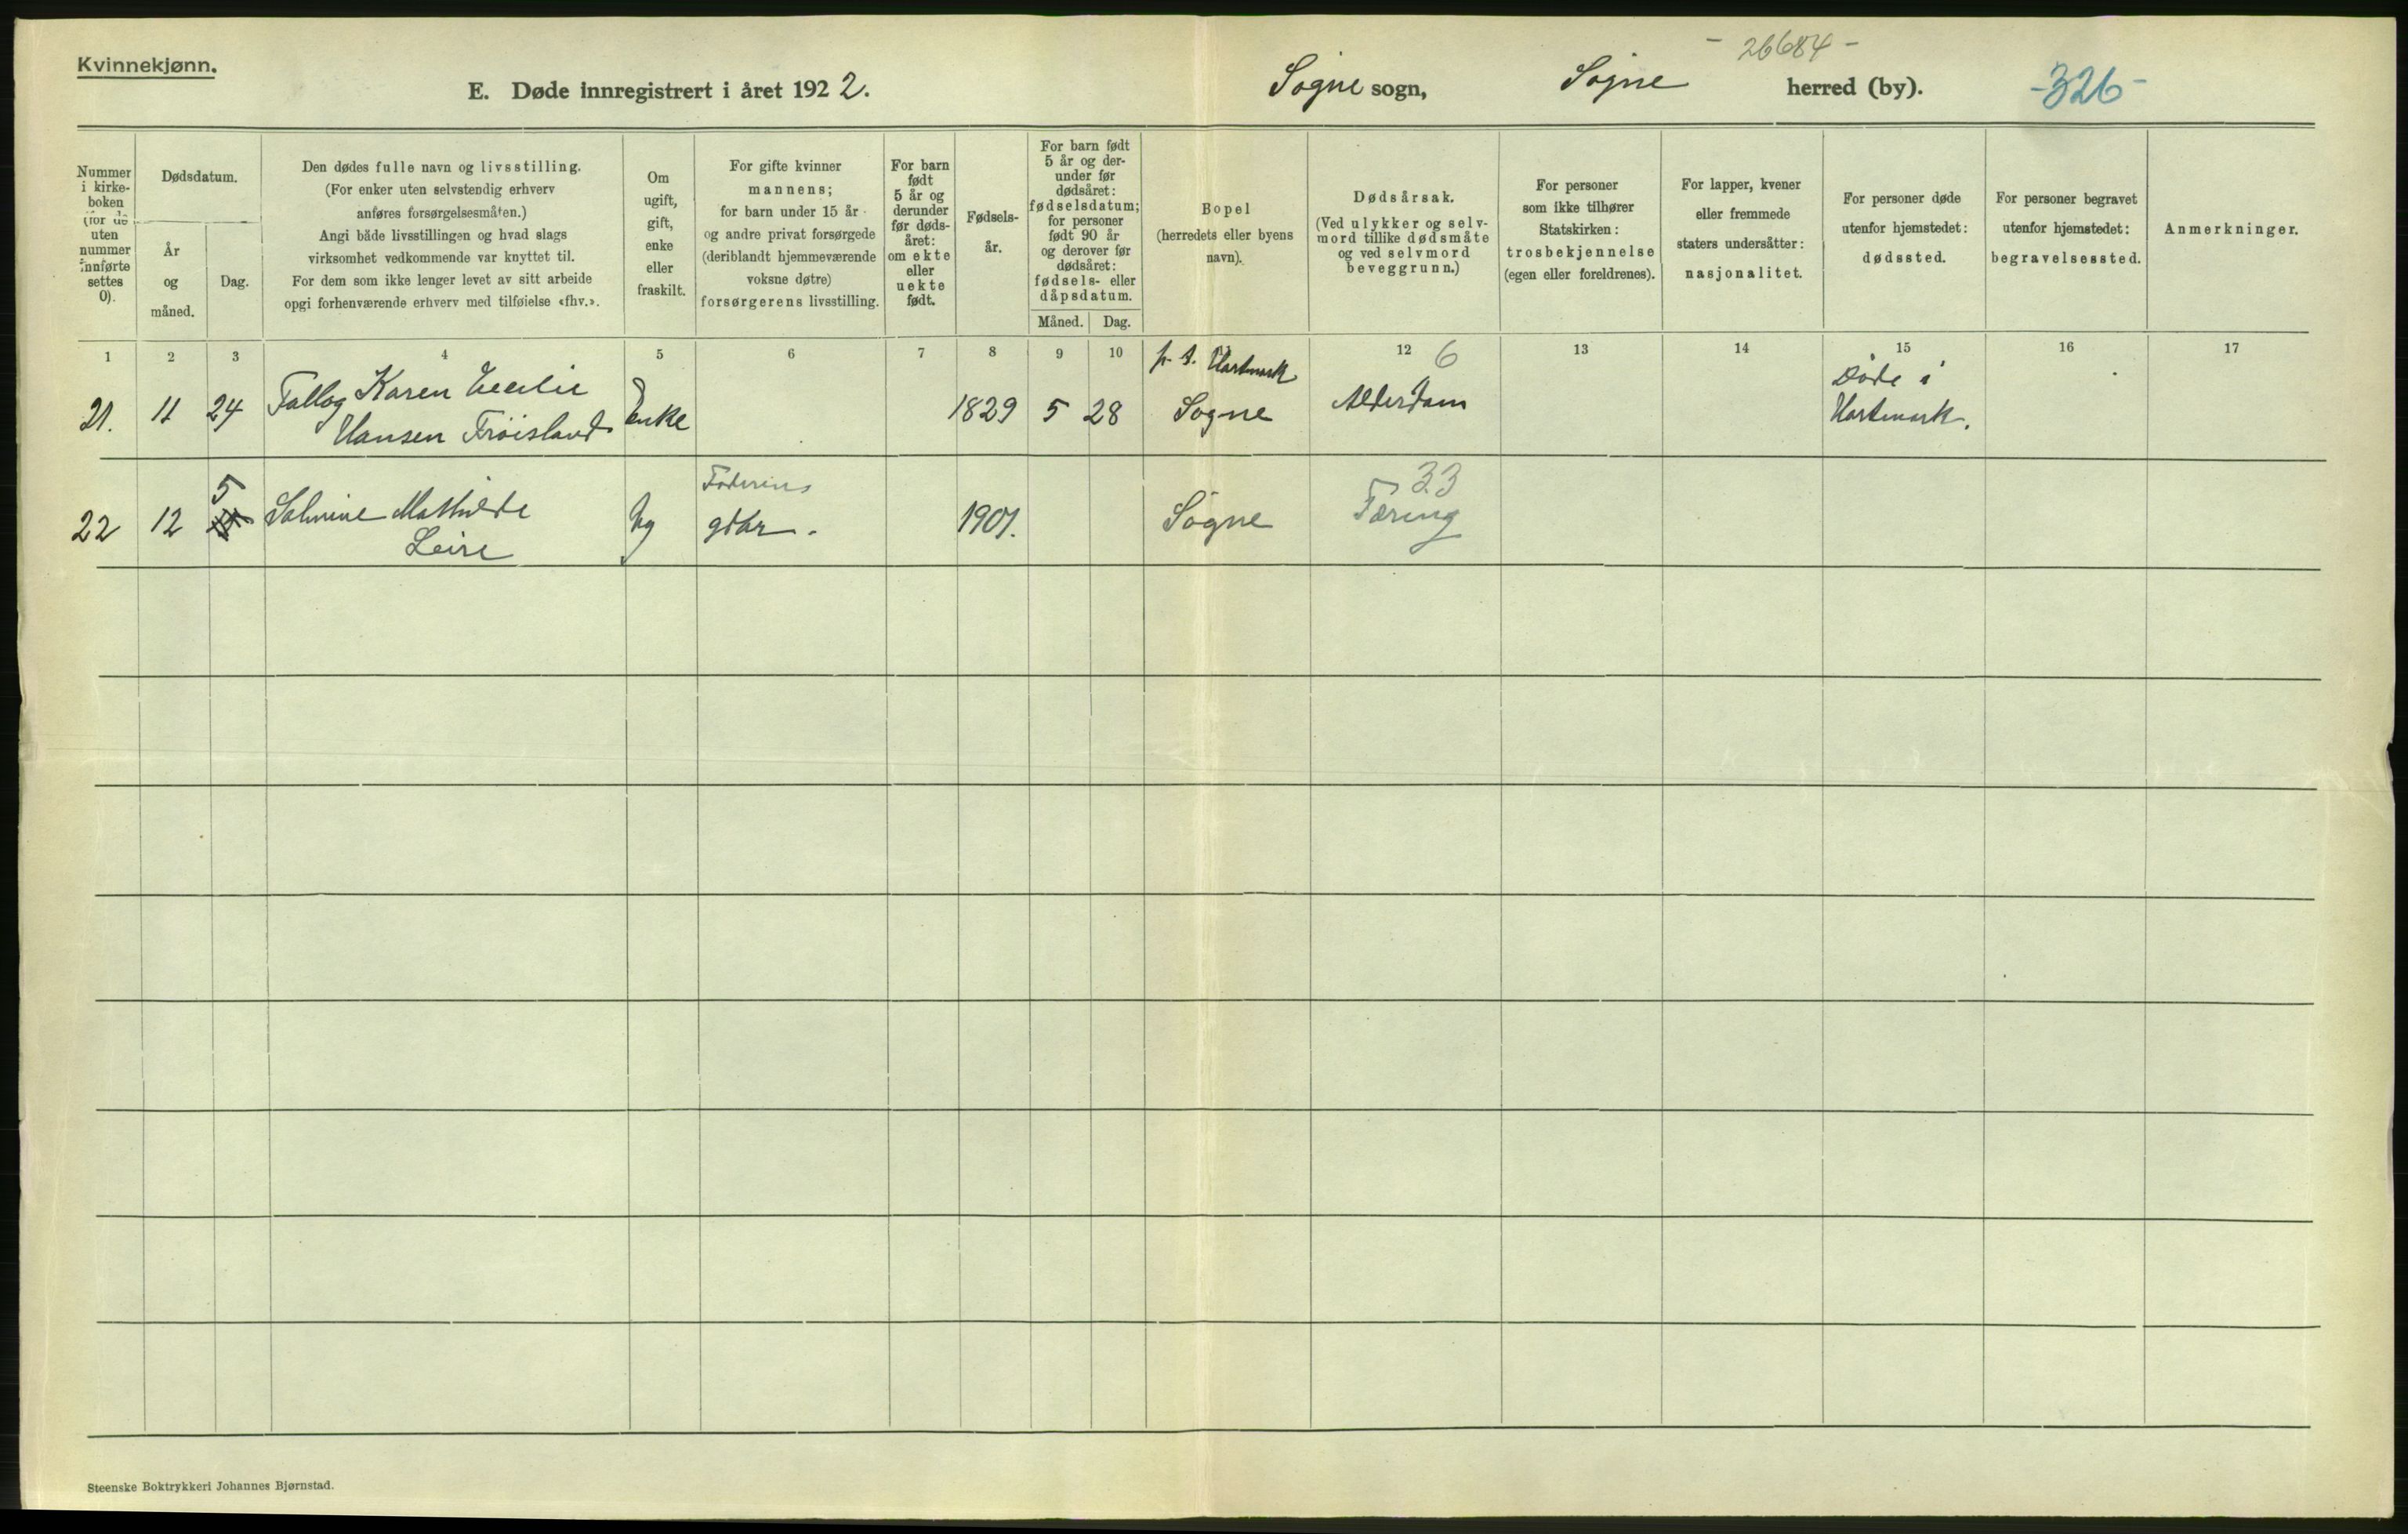 Kvinnekjønn.
- 26684 -
E. Døde innregistrert i året 1922.
Søgne sogn, Søgne herred (by).
-326-
Nummer
i kirke-
boken
(for de
uten
nummer
innførte
settes
0).
Dødsdatum.
År
og
måned.
Dag.
Den dødes fulle navn og livsstilling.
(For enker uten selvstendig erhverv
anføres forsørgelsesmåten.)
Angi både livsstillingen og hvad slags
virksomhet vedkommende var knyttet til.
For dem som ikke lenger levet av sitt arbeide
opgi forhenværende erhverv med tilføielse «fhv.».
Om
ugift,
gift,
enke
eller
fraskilt.
For gifte kvinner
mannens;
for barn under 15 år
og andre privat forsørgede
(deriblandt hjemmeværende
voksne døtre)
forsørgerens livsstilling.
For barn
født
5 år og
derunder
før døds-
året:
om ekte
eller
uekte
født.
Fødsels-
år.
For barn født
5 år og der-
under før
dødsåret:
fødselsdatum;
for personer
født 90 år
og derover før
dødsåret:
fødsels- eller
dåpsdatum.
Måned. Dag.
Bopel
(herredets eller byens
navn).
Dødsårsak.
(Ved ulykker og selv-
mord tillike dødsmåte
og ved selvmord
beveggrunn.)
For personer
som ikke tilhører
Statskirken:
trosbekjennelse
(egen eller foreldrenes).
For lapper, kvener
eller fremmede
staters undersåtter:
nasjonalitet.
For personer døde
utenfor hjemstedet:
dødssted.
For personer begravet
utenfor hjemstedet:
begravelsessted.
Anmerkninger.
1 2 3 4 5 6 7 8 9 10 12 13 14 15 16 17
21. 11 24
Karen Cecilie
Hansen Frøisland
Enke
1829 5 28
Hartmark
Søgne
6
Alderdom
Døde i
Hartmark.
22 12 5
Salmine Mathilde
Leire
Ug
Faderens
gbr.
1901.
Søgne
33
Tæring
Steenske Boktrykkeri Johannes Bjørnstad.